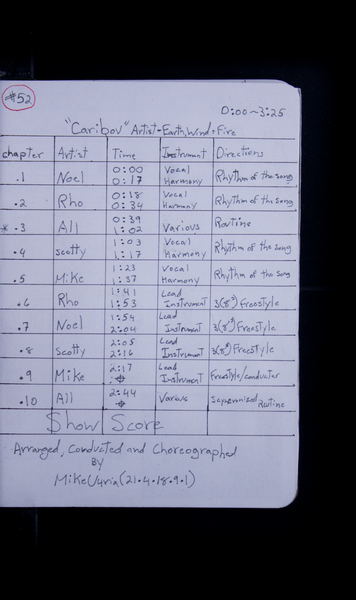 #52
0:00~3:25
"Caribou" Artist-Earth, Wind + Fire
chapter Artist Time Instrument Directions
.1 Noel 0:00 0:17 Vocal Harmony Rhythm of the song
.2 Rho 0:18 0:34 Vocal Harmony Rhythm of the song
* .3 All 0:39 1:02 Various Routine
.4 Scotty 1:03 1:17 Vocal Harmony Rhythm of the song
.5 Mike 1:23 1:37 Vocal Harmony Rhythm of the song
.6 Rho 1:41 1:53 Lead Instrument Freestyle
.7 Noel 1:54 2:04 Lead Instrument Freestyle
.8 Scotty 2:05 2:16 Lead Instrument Freestyle
.9 Mike 2:17 Lead Instrument Freestyle/conductor
.10 All 2:44 Various Synchronized Routine
Show Score
Arranged, Conducted and Choreographed
By
Mike (21.4.18.9.1)